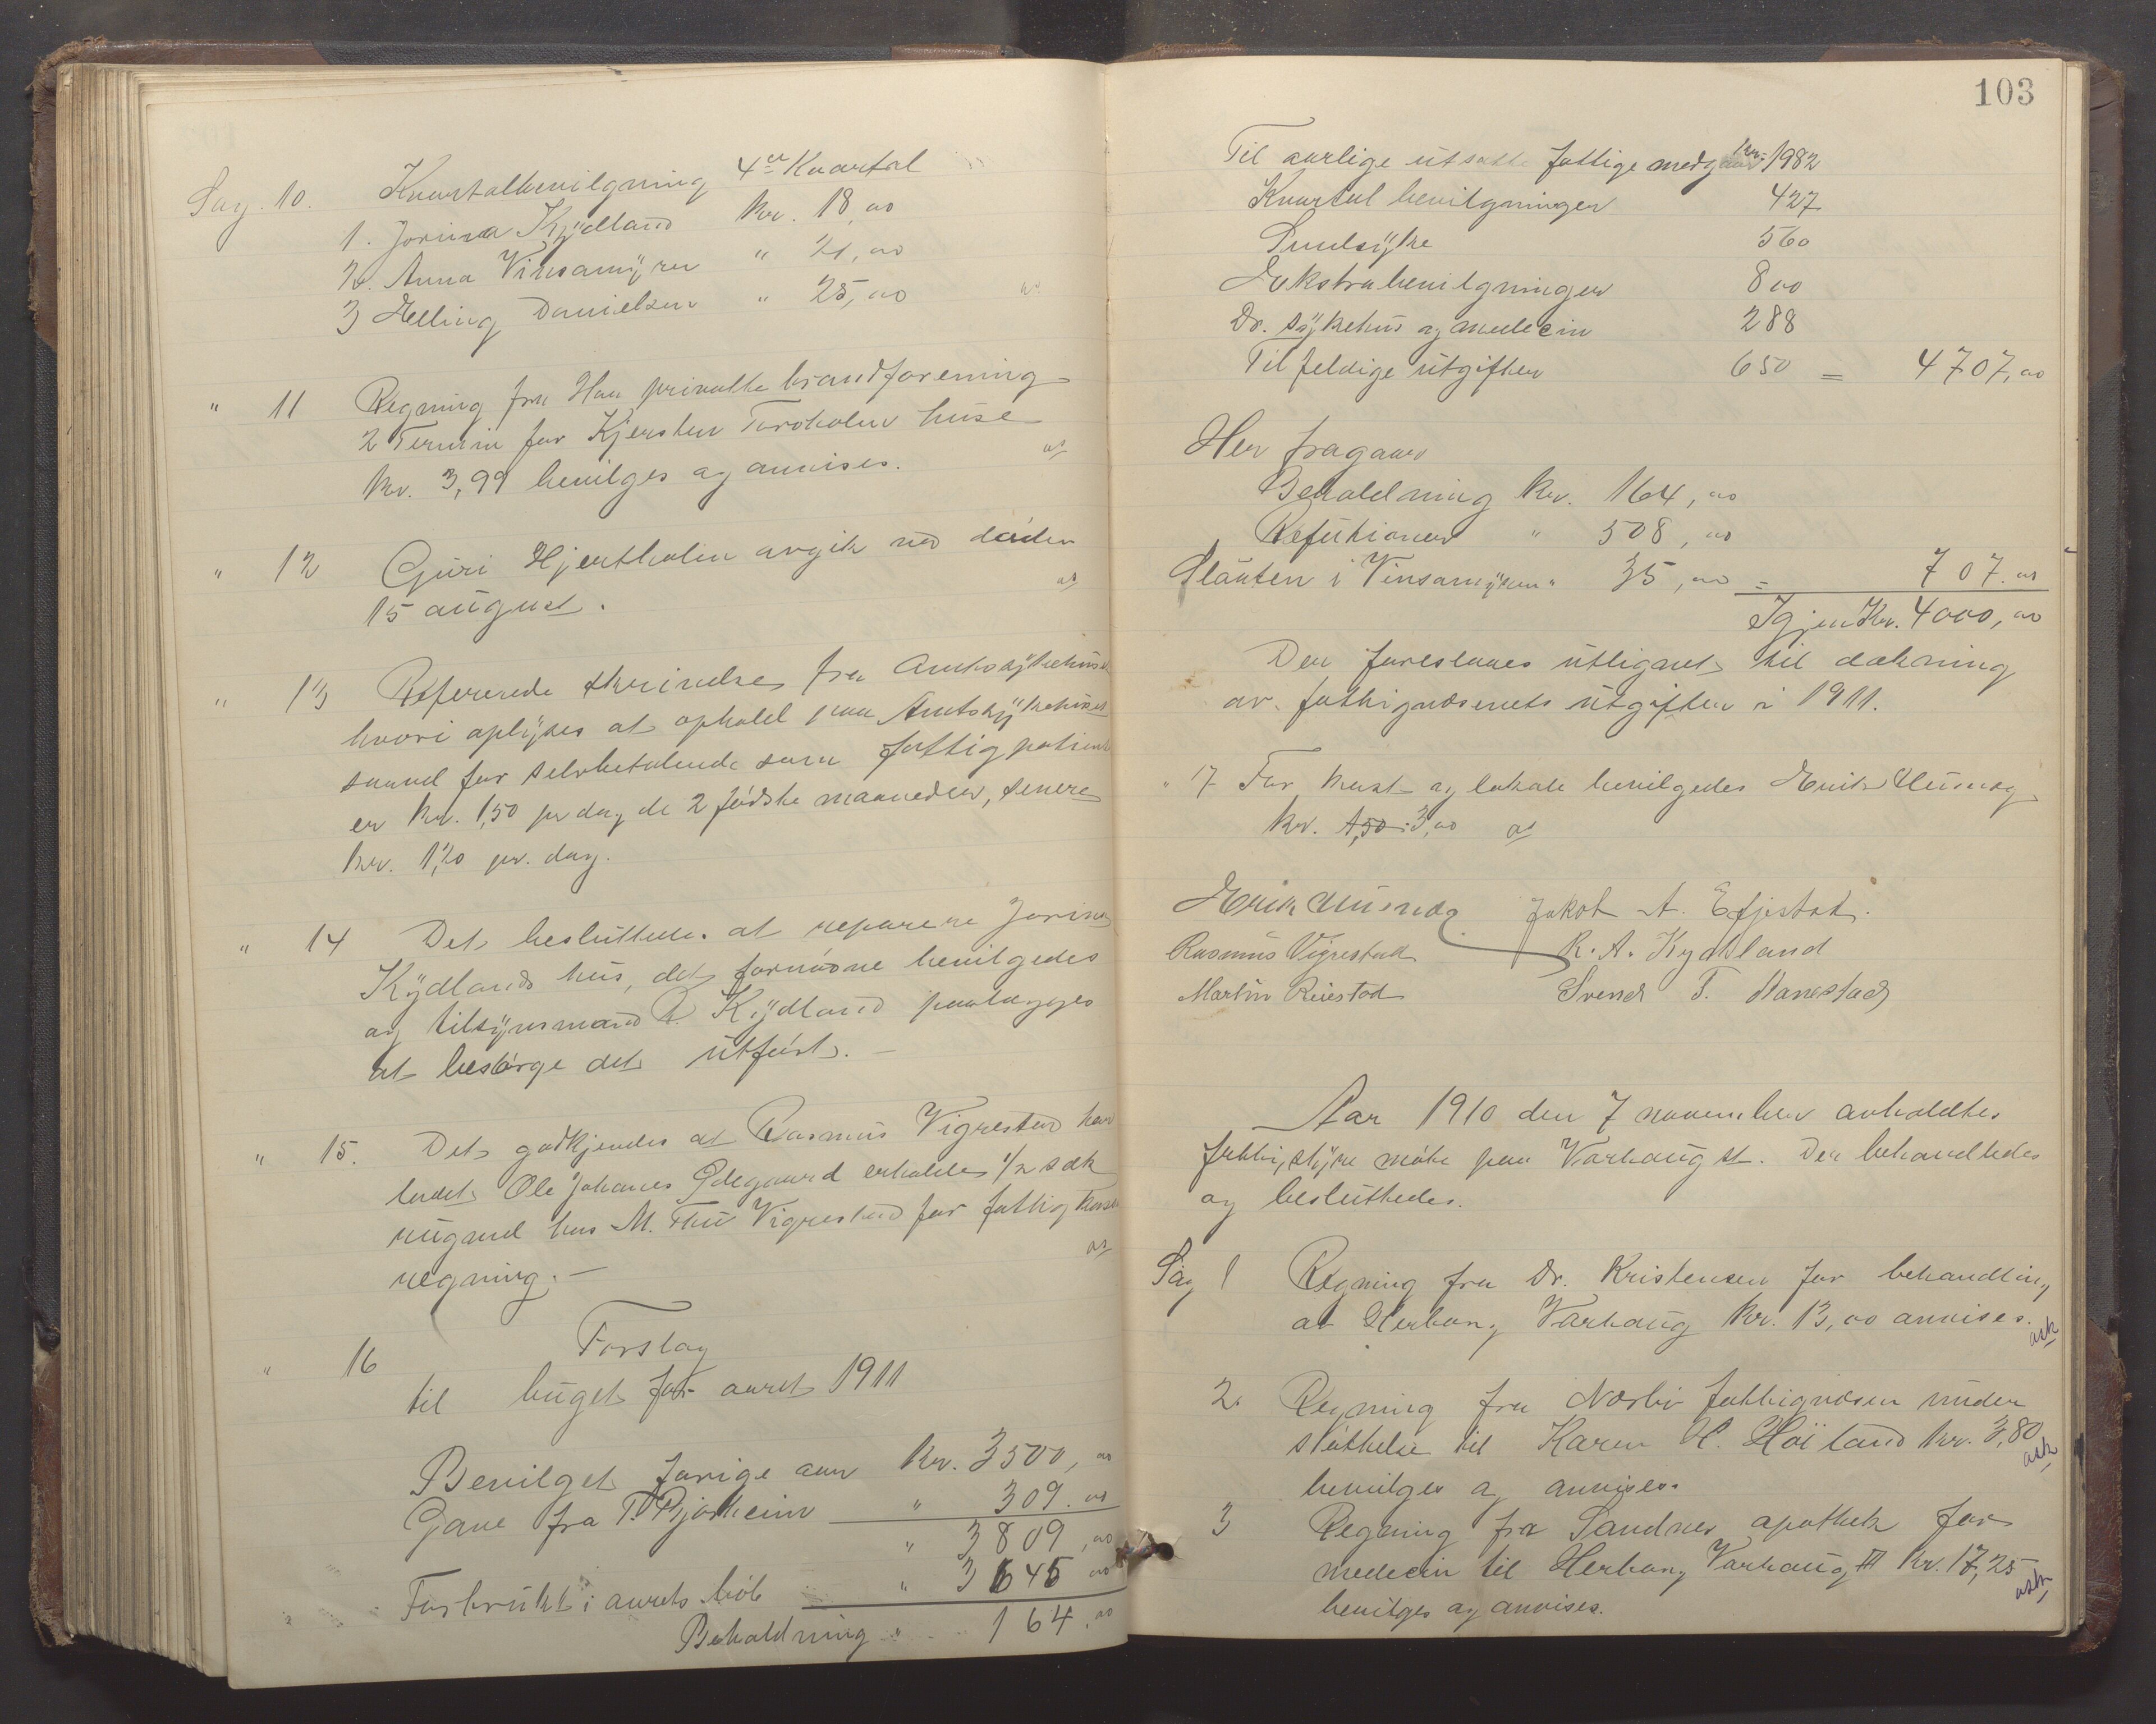 Sag. 10. Kvartalbevilgning 4de Kvartal
1. Jorina Kÿdland kr. 18,00
2. Anna Vinsamÿren " 21,00
3 Helling Danielsen " 25,00
" 11 Regning fra Haa private brandforening
2 Termin for Kjersten Torholen huse
kr. 3,99 bevilges og anvises.
" 12 Guri Hjertholen avgik ved døden
15 august.
" 13 Refererede skrivelse fra Amtssÿkehuset
hvori oplÿses at ophold paa Amtssÿkehuset
saavel for selvbetalende som fattigpatient
er kr. 1,50 pr dag de 2 første maaneder, senere
kr. 1,20 pr. dag.
" 14 Det besluttedes at reparere Jorina
Kÿdlands hus, det fornødne bevilgedes
og tilsÿnsmand R. Kÿdland paalægges
at besørge det utført. —
" 15. Det godkjendes at Rasmus Vigrestad har
ladet Ole Johanes Ødegaard erholde 1/2 sæk
rugmel hos M. Thu Vigrestad for fattigkassens
regning. —
" 16 Forslag
til buget for aaret 1911
Bevilget forige aar kr. 3500,00
Gave fra T. Bjorheim " 309.00
" 3809,00
Forbrukt i aarets løb " 3645 00
Beholdning " 164,00
103
Til aarlige utsatte fattige medgaar kr. 1982
Kvartal bevilgninger 427
Sindsÿke 560
Ekstrabevilgninger 800
Dr. sÿkehus og medecin 288
Tilfeldige utgifter 650 = 4707,00
Her fragaar
Beholdning kr. 164,00
Refusioner " 508,00
Slaatten i Vinsamÿren " 35,00 = 707.00
Igjen Kr. 4000,00
Der foreslaaes utlignet til dækning
av fattigvæsenets utgifter i 1911.
" 17 For kost og lokale bevilgedes Erik Ueland
kr. 1,50 3,00
Rasmus Vigrestad R. A. Kydland
Jakob A. Efjestad.
Martin Reiestad Svend T. Hanestad
Aar 1910 den 7 november avholdtes
fattigstÿre møte paa Varhaug st. Der behandledes
og besluttedes.
Sag 1 Regning fra Dr. Kristensen for behandling
av Herborg Varhaug kr. 13,00 anvises.
2. Regning fra Nærbø fattigvæsen under
støttelse til Karen H. Höiland kr. 3,80
bevilges og anvises.
3 Regning fra Sandnes apothek for
medecin til Herborg Varhaug kr. 17,25
bevilges og anvises.